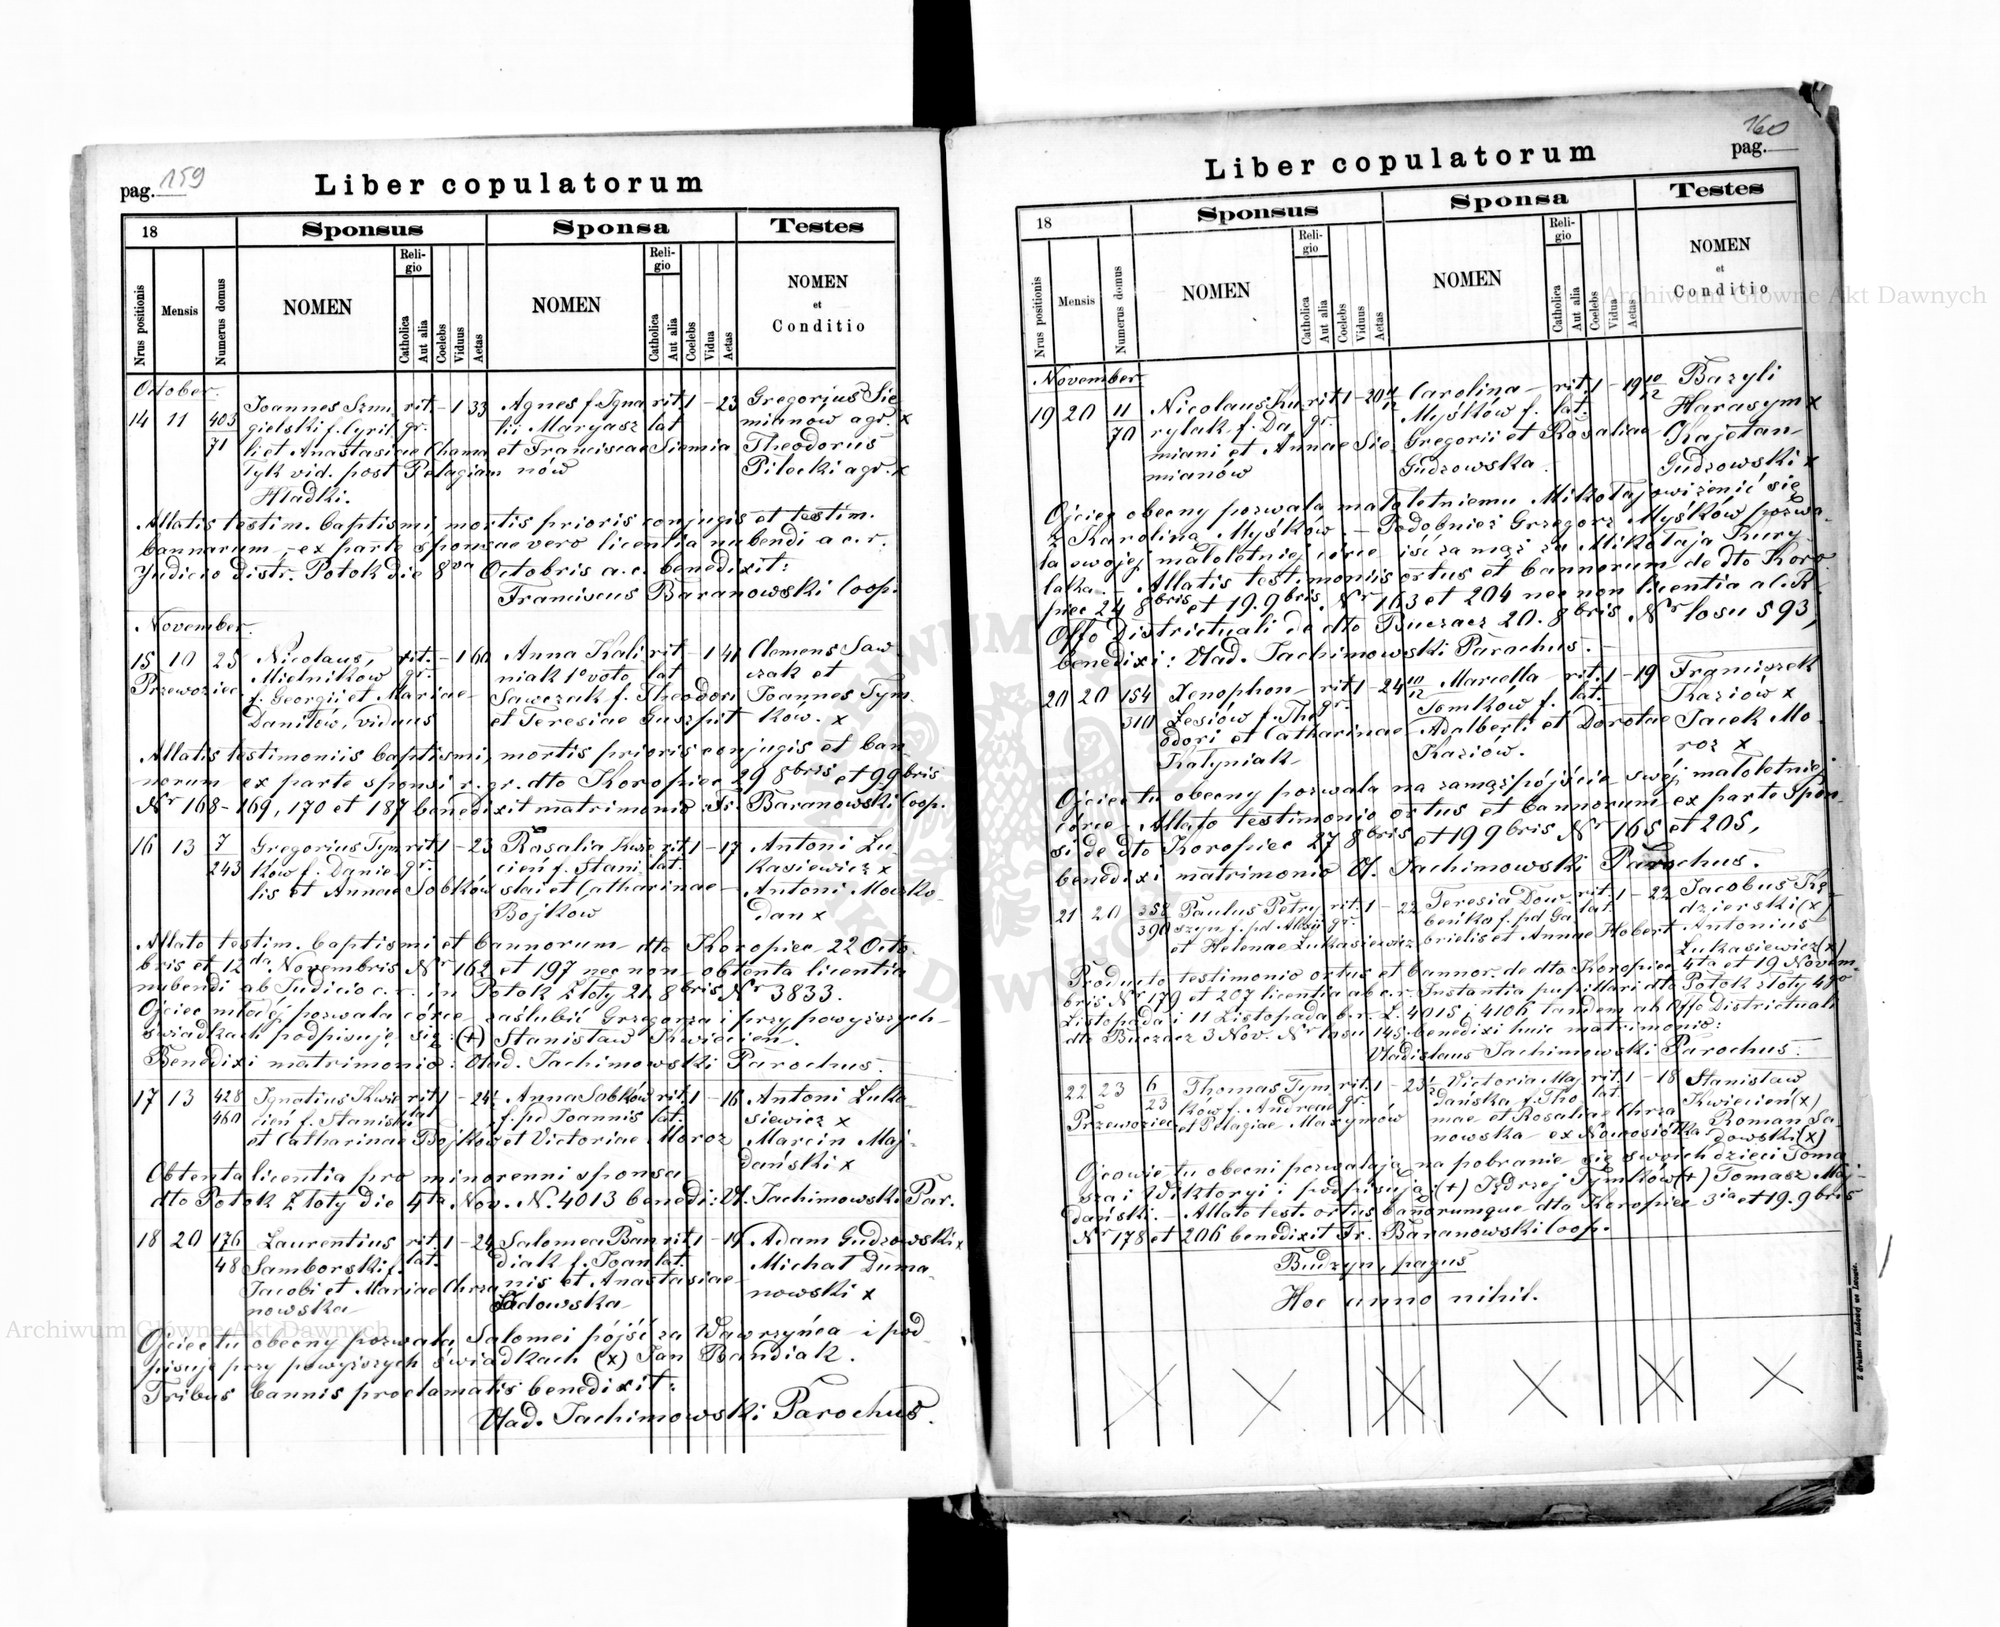 pag. 159
Liber copulatorum
18
Sponsus
Sponsa
Testes
Nrus positionis
Mensis
Numerus domus
NOMEN
Religio
Catholica
Aut alia
Coelebs
Viduus
Aetas
NOMEN
Religio
Catholica
Aut alia
Coelebs
Vidua
Aetas
NOMEN
et
Conditio
October.
14 11 403 Joannes Szmi rit. - 1 33 Agnes f. Igna rit. 1 - 23 Gregorius Sie
71 gielski f. Cyril gr. tii Maryasz lat mianow agr. x
li et Anastasiae Chama et Franciscae Siemia Theodorus
tyk vid. post Pelagiam nów Pilecki agr. x
Hladki.
Allatis testim. baptismi, mortis prioris conjugis et testim.
bannorum, ex parte sponsae vero licentia nubendi a c. r.
Judicio distr. Potok die 8va Octobris a. c. benedixit:
Franciscus Baranowski Coop.
November.
15 10 25 Nicolaus, rit. - 1 60 Anna Kali rit - 1 41 Clemens Saw
Przewoziec Mielnikow gr. niak 1o voto lat czak et
f. Georgii et Mariae Sawczak f. Theodori Joannes Tym
Daniłów, viduus et Teresiae Guszpit ków. x
Allatis testimoniis baptismi, mortis prioris conjugis et ban
norum ex parte sponsi r. gr. dto Koropiec 29 8bris et 9 9bris
Nr 168-169, 170 et 187 benedixit matrimonio Fr. Baranowski Coop.
16 13 7 Gregorius Tym rit. 1 - 23 Rosalia Kwie rit. 1 - 17 Antoni Łu
243 ków f. Danie gr. cień f. Stani lat. kasiewicz x
lis et Annae Sobków slai et Catharinae Antoni Moczko
Bojkow dan x
Allato testim. baptismi et bannorum dto Koropiec 22 Octo
bris et 12da Novembris Nr 162 et 197 nec non obtenta licentia
nubendi ab Judicio c. r. in Potok Złoty 21. 8bris Nr 3833.
Ojciec młodéj pozwala córce zaślubić Grzegorza i przy powyższych
świadkach podpisuje się: (+) Stanisław Kwiecien.
Benedixi matrimonio: Vlad. Jachimowski Parochus.
17 13 428 Ignatius Kwie rit. 1 - 24 Anna Sobków rit. 1 - 16 Antoni Łuka
460 cień f. Stanislai lat f. pd Joannis lat. siewicz x
et Catharinae Bojkow et Victoriae Moroz Marcin Maj
dański x
Obtenta licentia pro minorenni sponsa
dto Potok Złoty die 4ta Nov. N. 4013 benedixi: Vl. Jachimowski Par.
18 20 176 Laurentius rit. 1 - 24 Salomea Ban rit. 1 - 19 Adam Gudzowski x
48 Samborski f. lat. diak f. Joan lat. Michał Duma
Jacobi et Mariae Chrza nis et Anastasiae nowski x
nowska Sadowska
Ojciec tu obecny pozwala Salomei pójść za Wawrzyńca i pod
pisuje przy powyższych świadkach (x) Jan Bandiak.
Tribus bannis proclamatis benedixit:
Vlad. Jachimowski Parochus.
160
pag.
Liber copulatorum
18
Sponsus
Sponsa
Testes
Nrus positionis
Mensis
Numerus domus
NOMEN
Religio
Catholica
Aut alia
Coelebs
Viduus
Aetas
NOMEN
Religio
Catholica
Aut alia
Coelebs
Vidua
Aetas
NOMEN
et
Conditio
November
19 20 11 Nicolaus Ku rit. 1 - 20 Carolina rit. 1 - 19 10/12 Bazyli
70 rylak f. Da gr. Myśków f. lat. Harasym x
miani et Annae Sie Gregorii et Rosaliae Kajetan
mianów Gudzowska. Gudzowski x
Ojciec obecny pozwala małoletniemu Mikołajowi żenić się
z Karoliną Myśków. - Podobnież Grzegorz Myśków pozwa
la swojej małoletniej córce iść za mąż za Mikołaja Kury
laka. - Allatis testimoniis ortus et bannorum de dto Koro
piec 24 8bris et 19. 9bris Nr 163 et 204 nec non licentia a C. R.
Offo Districtuali de dto Buczacz 20. 8bris Nr losu 593,
benedixi: Vlad. Jachimowski Parochus.
20 20 154 Xenophon rit. 1 - 24 10/12 Marcella rit. 1 - 19 Franciszek
310 Łesiów f. The gr. Tomków f. lat. Kaziów x
odori et Catharinae Adalberti et Dorotae Jacek Mo
Kałyniak Kaziów. roz x
Ojciec tu obecny pozwala na zamążpójście swéj małoletniej
córce. Allato testimonio ortus et bannorum ex parte spon
si de dto Koropiec 27 8bris et 19 9bris Nr 165 et 205,
benedixi matrimonio Vl. Jachimowski Parochus.
21 20 358 Paulus Petry rit. 1 - 22 Teresia Dow rit. 1 - 22 Jacobus Kę
390 szyn f. pd Alexii gr. beńka f. pd Ga lat. dzierski (x)
et Helenae Łukasiewicz brielis et Annae Hobert Antonius
Łukasiewicz (x)
Producto testimonio ortus et bannor. de dto Koropiec 4ta et 19 Novem
bris Nr 179 et 207 licentia ab c. r. Instantia pupillari dto Potok złoty 4go
Listopada i 11 Listopada b. r. L. 4015 i 4106 tandem ab Offo Districtuali
dto Buczacz 3 Nov. Nr losu 145 benedixi huic matrimonio:
Vladislaus Jachimowski Parochus.
22 23 6 Thomas Tym rit. 1 - 23 Victoria Maj rit. 1 - 18 Stanisław
23 ków f. Andreae gr. dańska f. Tho lat. Kwiecień (x)
Przewoziec et Pelagiae Maxymów mae et Rosaliae Chrza Roman Sa
nowska ex Nowosiółka dowski (x)
Ojcowie tu obecni pozwalają na pobranie się swoich dzieci Toma
sza i Wiktoryi i podpisują: (+) Jędrzej Tymków (+) Tomasz Maj
dański. - Allato test. ortus bannorumque dto Koropiec 3ia et 19. 9bris
Nr 178 et 206 benedixit Fr. Baranowski Coop.
Budzyn, pagus
Hoc anno nihil.
Z drukarni Ludowej we Lwowie.
Archiwum Główne Akt Dawnych
Archiwum Główne Akt Dawnych